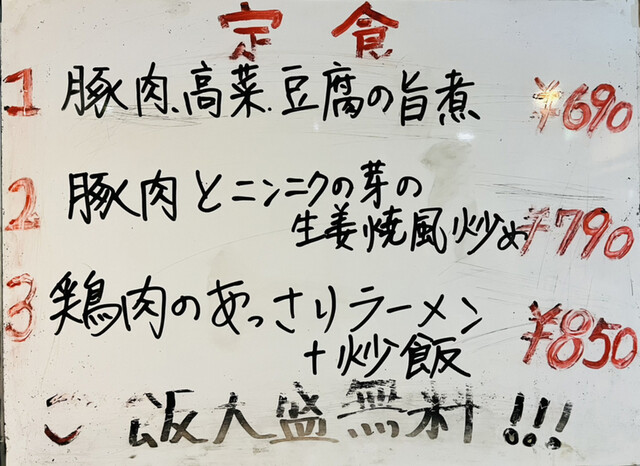 定食
1 豚肉、高菜、豆腐の旨煮 ¥690
2 豚肉とニンニクの芽の
生姜焼風炒め ¥790
3 鶏肉のあっさりラーメン
+炒飯 ¥850
ご飯大盛無料!!!